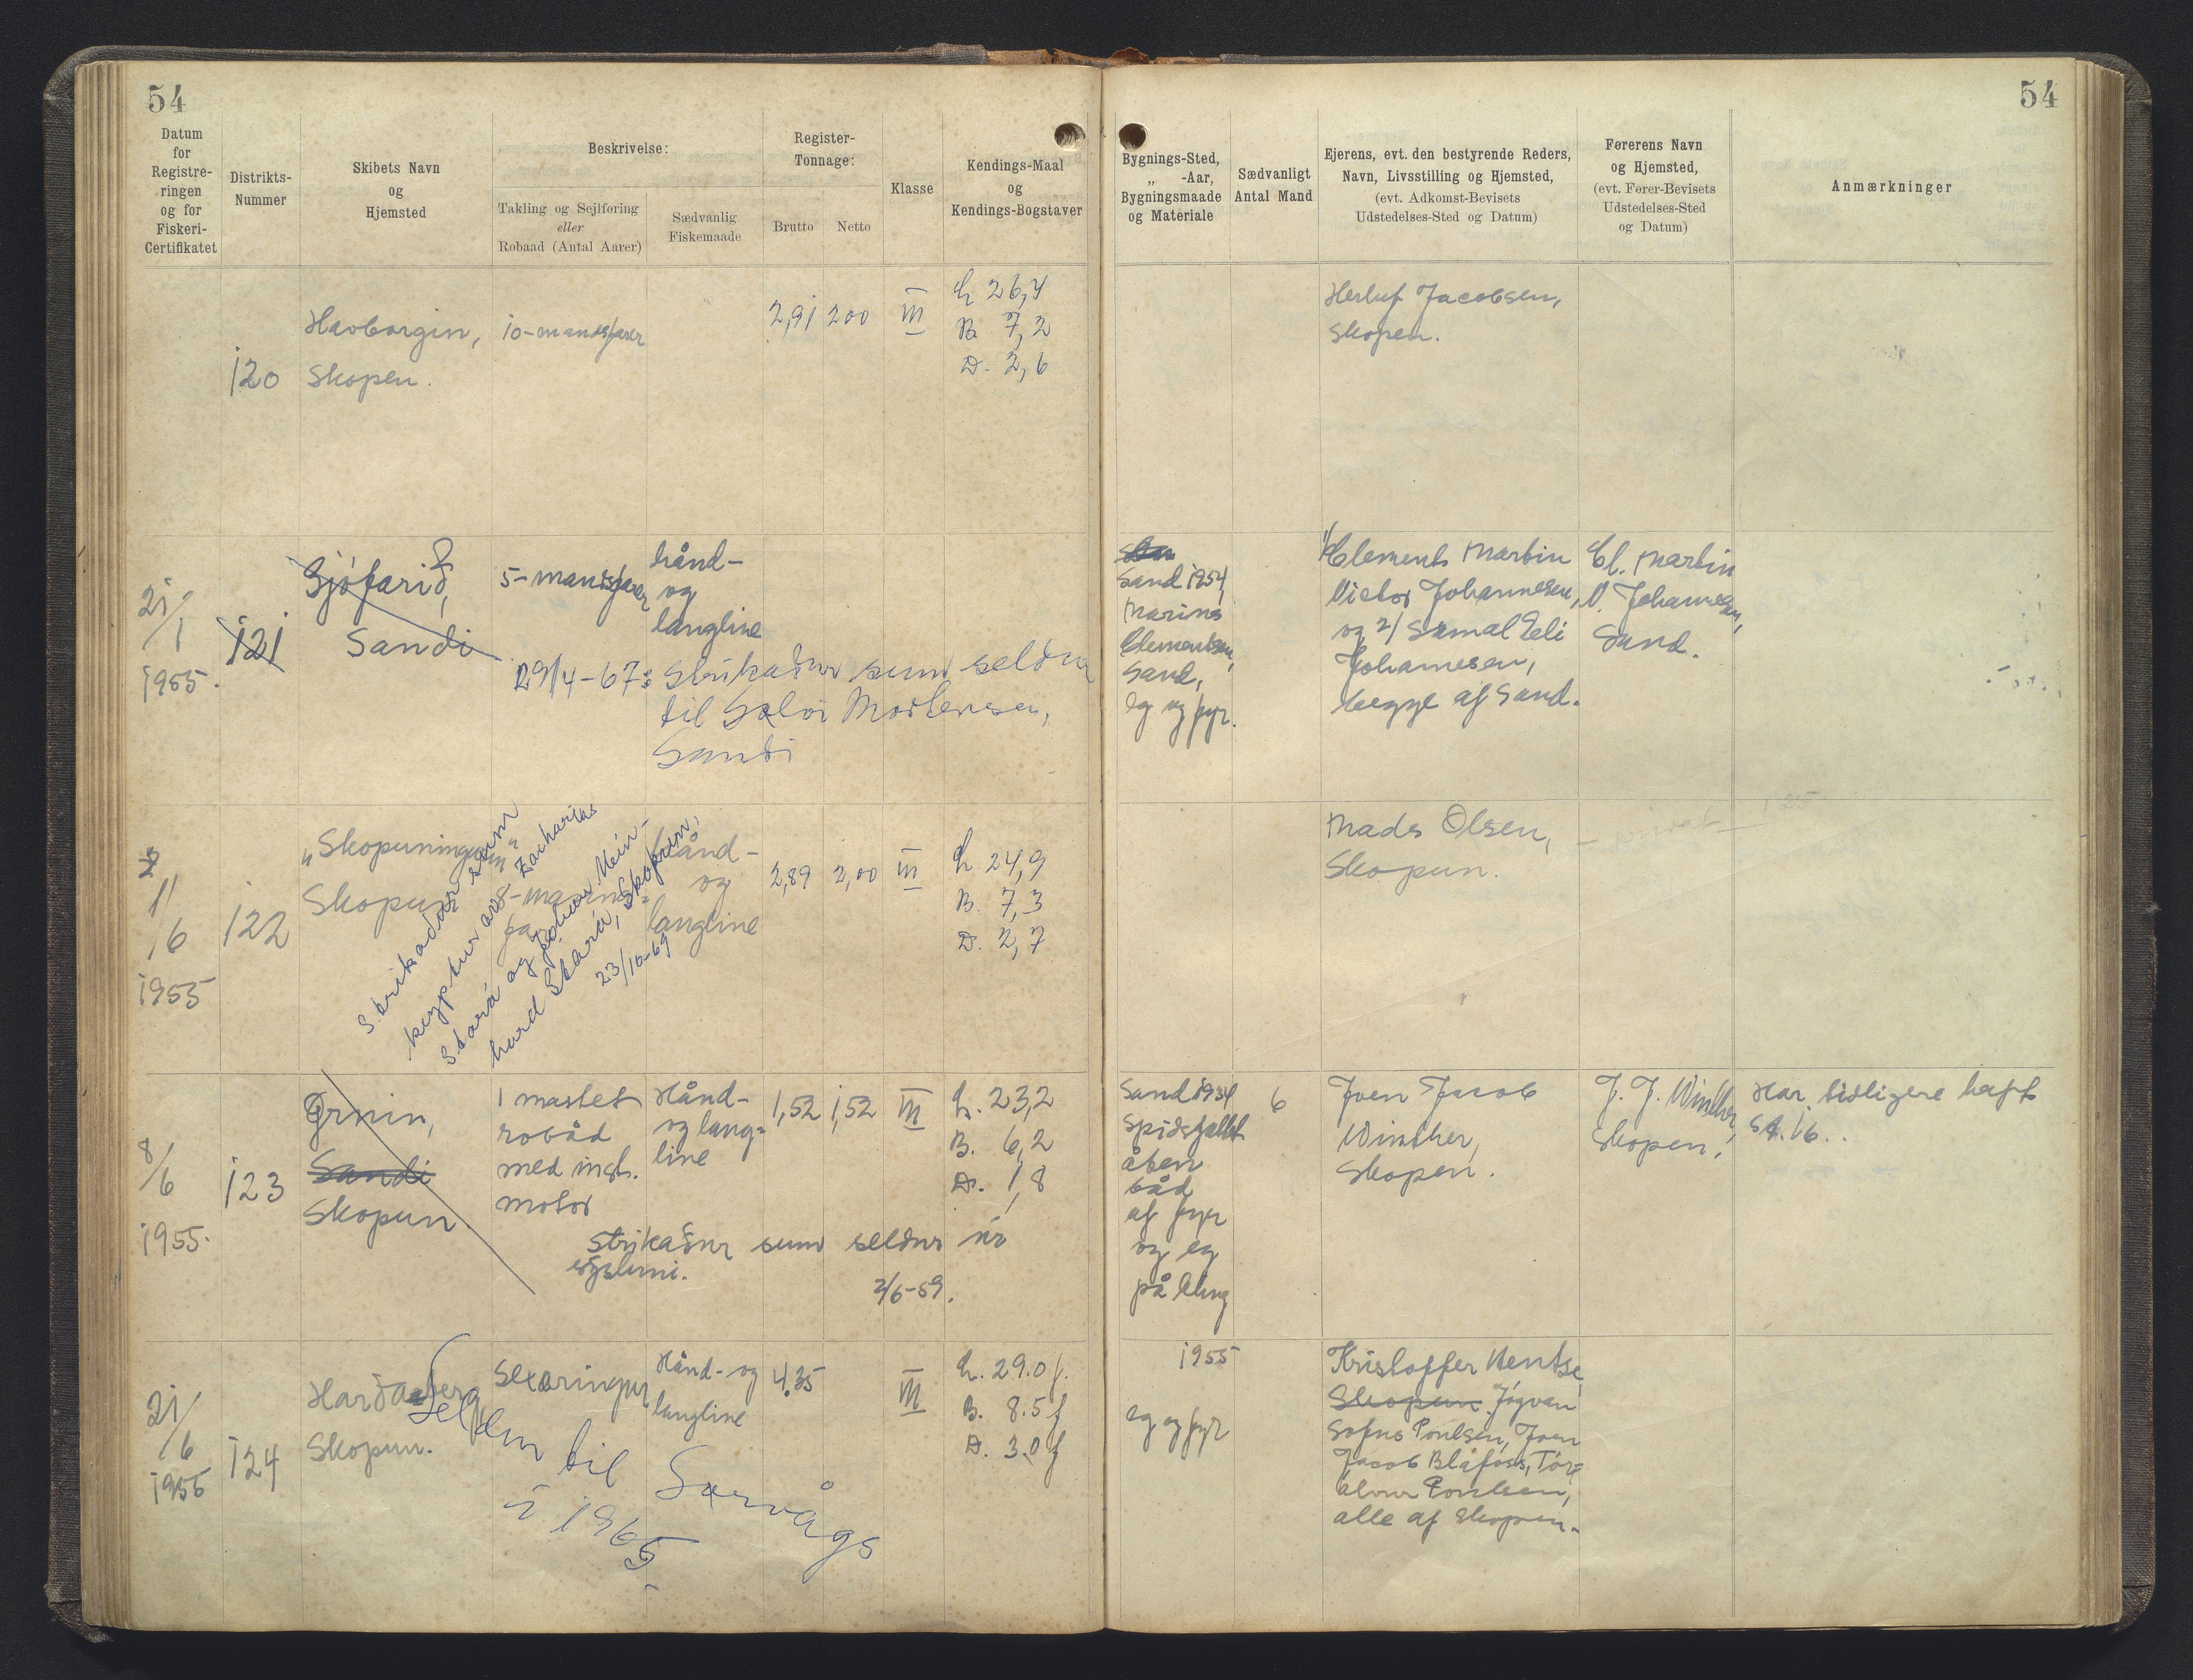 54
54
Datum
for
Registre-
ringen
og for
Fiskeri-
Certifikatet
Distrikts-
Nummer
Skibets Navn
og
Hjemsted
Beskrivelse:
Takling og Sejlføring
eller
Robaad (Antal Aarer)
Sædvanlig
Fiskemaade
Register-
Tonnage:
Brutto
Netto
Klasse
Kendings-Maal
og
Kendings-Bogstaver
Bygnings-Sted,
„ -Aar,
Bygningsmaade
og Materiale
Sædvanligt
Antal Mand
Ejerens, evt. den bestyrende Reders,
Navn, Livsstilling og Hjemsted,
(evt. Adkomst-Bevisets
Udstedelses-Sted og Datum)
Førerens Navn
og Hjemsted,
(evt. Fører-Bevisets
Udstedelses-Sted
og Datum)
Anmærkninger
120
Havborgin,
Skopen.
10-mandsfarer
2,91
2,00
III
L 26,4
B. 7,2
D. 2,6
Herluf Jacobsen,
Skopen.
21/1
1955.
121
Sjófarið,
Sandi
5-mandsfarer
hånd-
og
langline
29/4-67: Strikaður sum seldur
til Sálvi Mortensen,
Sandi
Sand 1954
Marino
Clementsen,
Sand,
Eg og fyr.
1/ Clements Martin
Victor Johannesen,
og 2/ Sámal Eli
Johannesen,
begge af Sand.
Cl. Martin
V. Johannesen,
Sand.
11/6
1955
122
"Skopuningurin"
Skopun
8-mannafar
hånd-
og
langline
2,89
2,00
III
L 24,9
B. 7,3
D. 2,7
Strikaður sum
keyptur av Zacharias
Stará og Jóhan Mein-
hard Stará, Skopun,
23/10-69
Mads Olsen,
Skopun.
privat
8/6
1955.
123
Ørnin,
Sandi
Skopun.
1 mastet
robåd
med inst.
motor
Hånd-
og lang-
line
1,52
1,52
III
L. 23,2
B. 6,2
D. 1,8
Strikaður sum seldur úr
sýslumi.
2/6-59.
Sand 1934
Spidsgattet
åben
båd
af fyr
og eg
på kling
6
Joen Jacob
Winther,
Skopen.
J. J. Winther,
Skopen.
Har tidligere haft
SA. 16.
21/6
1955
124
Harðaberg
Skopun.
Sexæringur
Hånd- og
langline
4.35
III
L. 29.0 f.
B. 8.5 f
D. 3.0 f
Seldur til Sørvágs
í 1965.
1955
eg og fyr
Kristoffer Hentse,
Skopun. Jógvan
Sofus Poulsen, Joen
Jacob Bláfoss, Tór-
álvur Poulsen,
alle af Skopen.